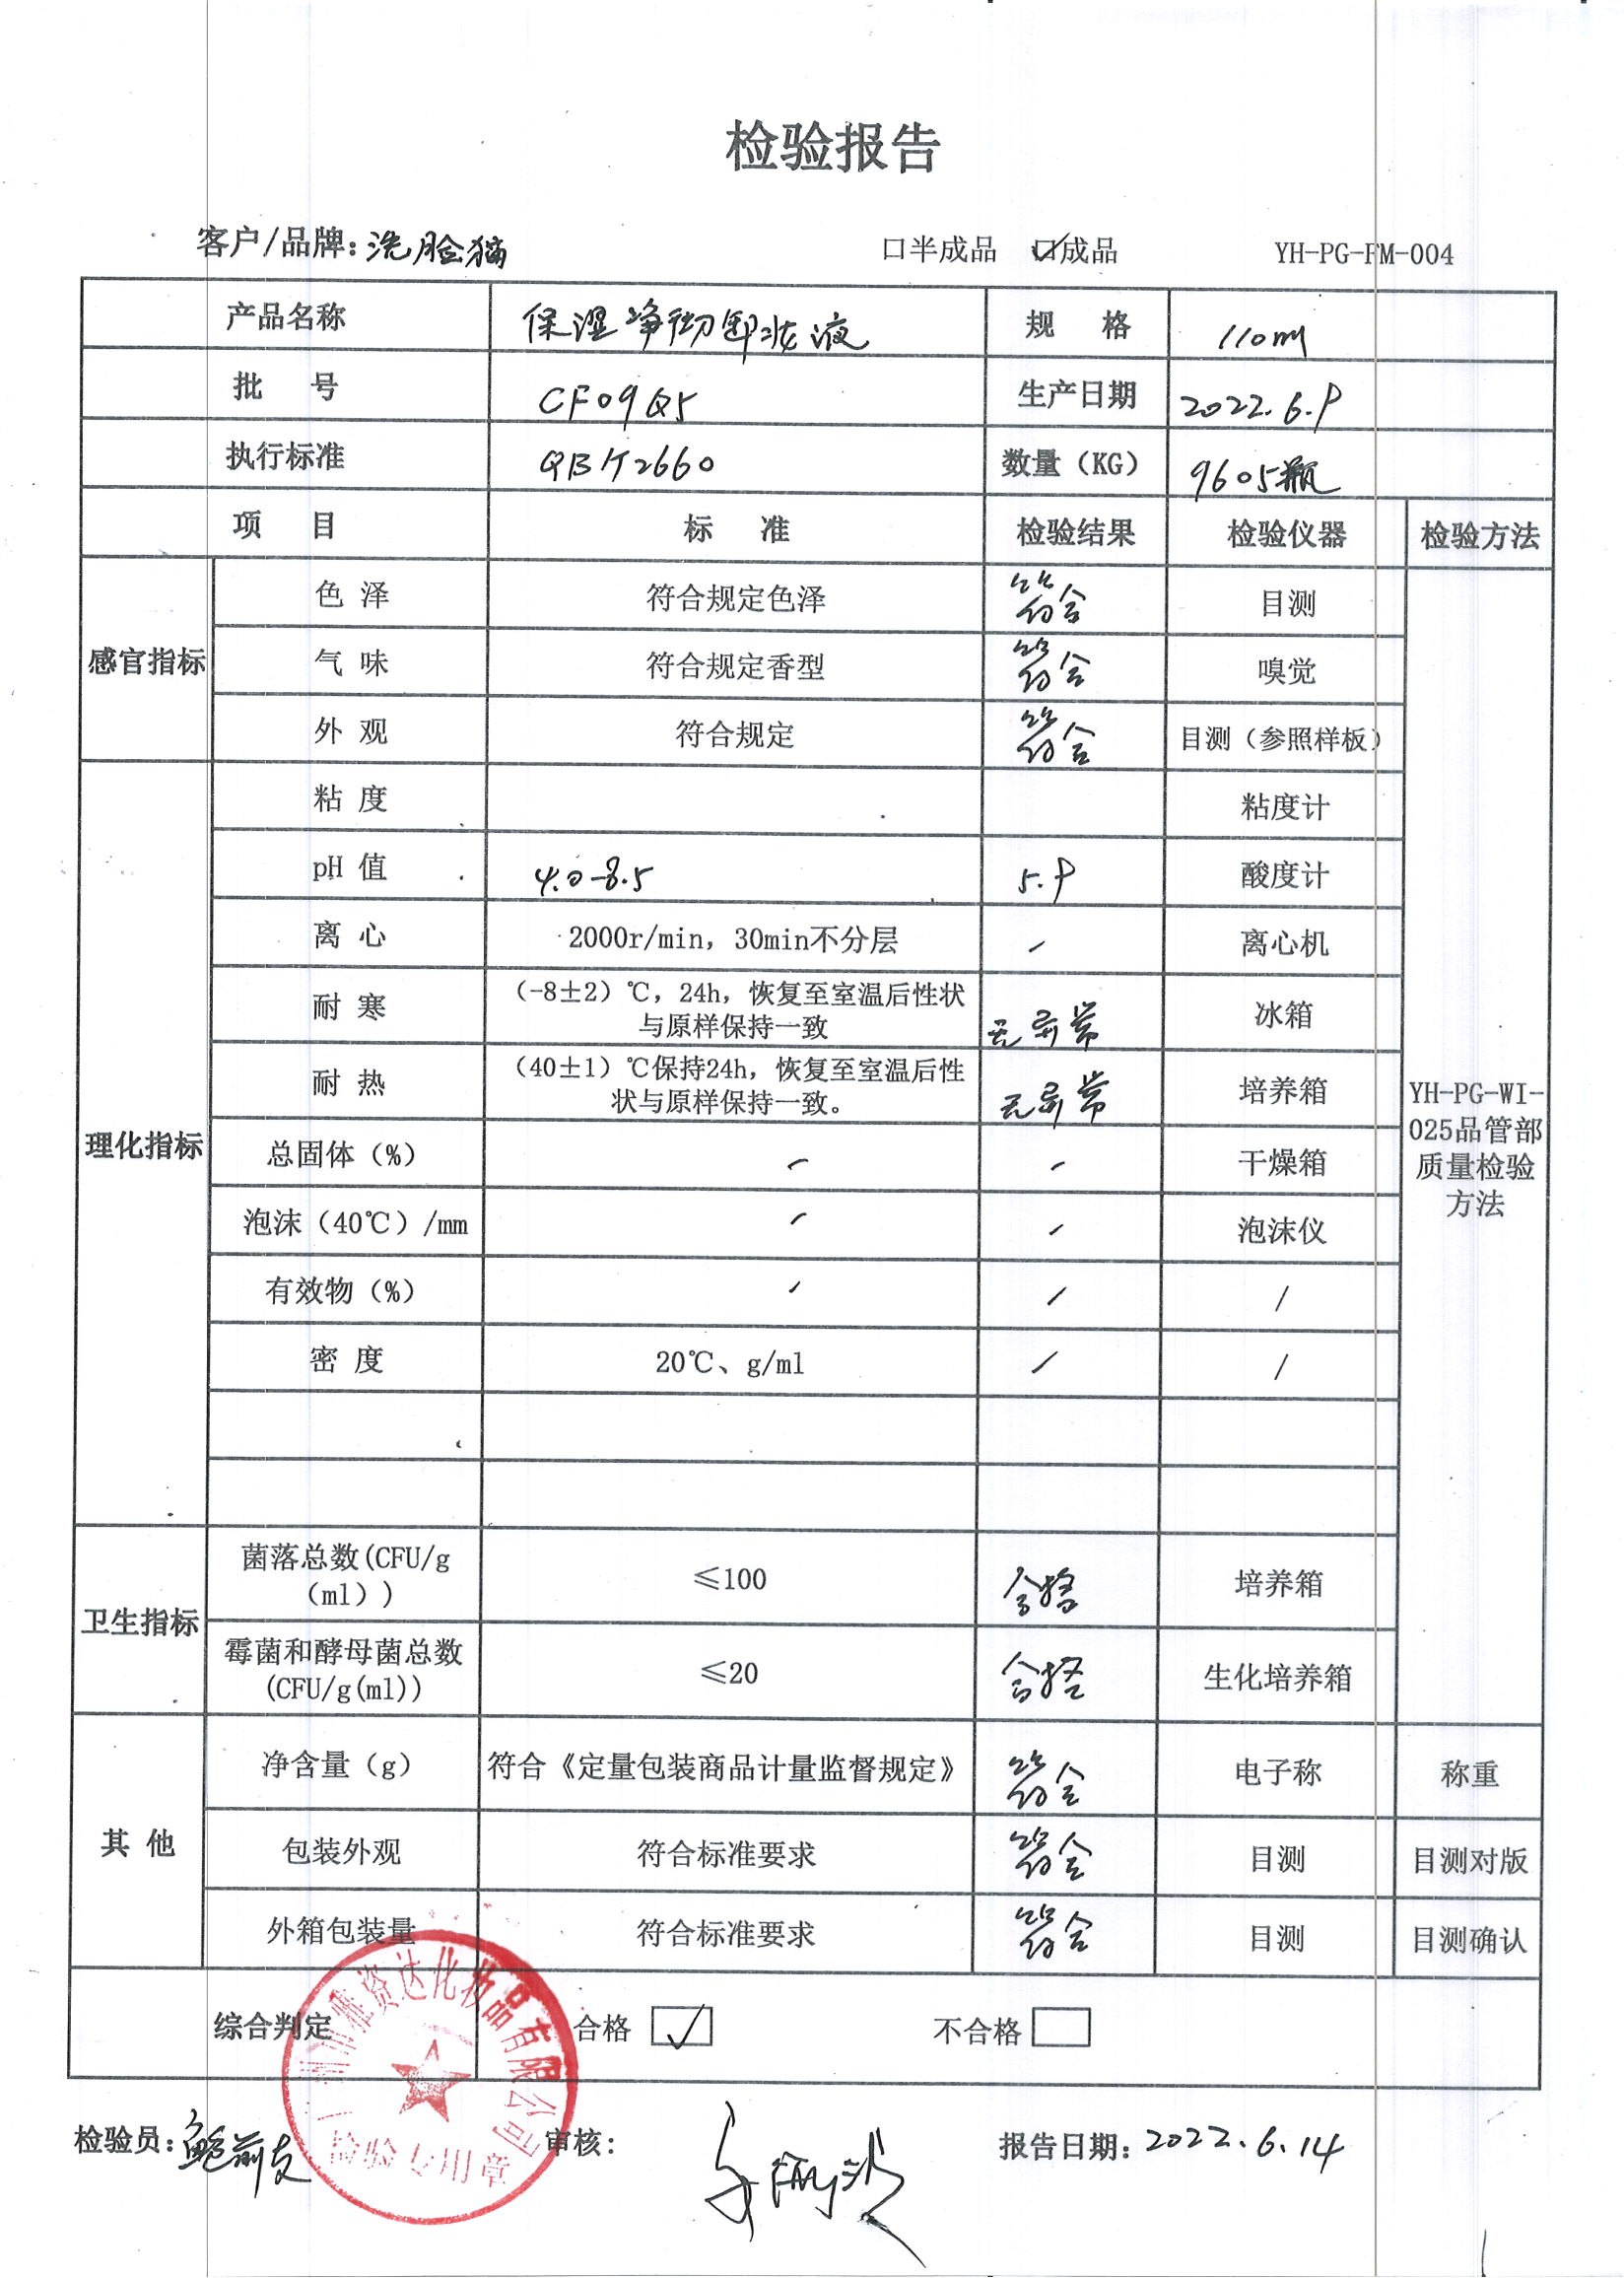 检验报告
客户/品牌：洗脸猫 口半成品 口✓成品 YH-PG-FM-004
产品名称 保湿净彻卸妆液 规 格 110ml
批 号 CF09Q5 生产日期 2022.6.9
执行标准 QB/T2660 数量（KG） 9605瓶
项 目 标 准 检验结果 检验仪器 检验方法
感官指标
色 泽 符合规定色泽 符合 目测
气 味 符合规定香型 符合 嗅觉
外 观 符合规定 符合 目测（参照样板）
理化指标
粘 度 粘度计
pH 值 4.0-8.5 5.9 酸度计
离 心 2000r/min，30min不分层 / 离心机
耐 寒 （-8±2）℃，24h，恢复至室温后性状
与原样保持一致 无异常 冰箱
耐 热 （40±1）℃保持24h，恢复至室温后性
状与原样保持一致。 无异常 培养箱
总固体（%） / / 干燥箱
泡沫（40℃）/mm / / 泡沫仪
有效物（%） / / /
密 度 20℃、g/ml / /
YH-PG-WI-
025品管部
质量检验
方法
卫生指标
菌落总数(CFU/g
（ml）) ≤100 合格 培养箱
霉菌和酵母菌总数
(CFU/g(ml)) ≤20 合格 生化培养箱
其 他
净含量（g） 符合《定量包装商品计量监督规定》 符合 电子称 称重
包装外观 符合标准要求 符合 目测 目测对版
外箱包装量 符合标准要求 符合 目测 目测确认
综合判定 合格 ✓ 不合格
检验员： 审核： 报告日期：2022.6.14
雅资达化妆品有限公司
检验专用章